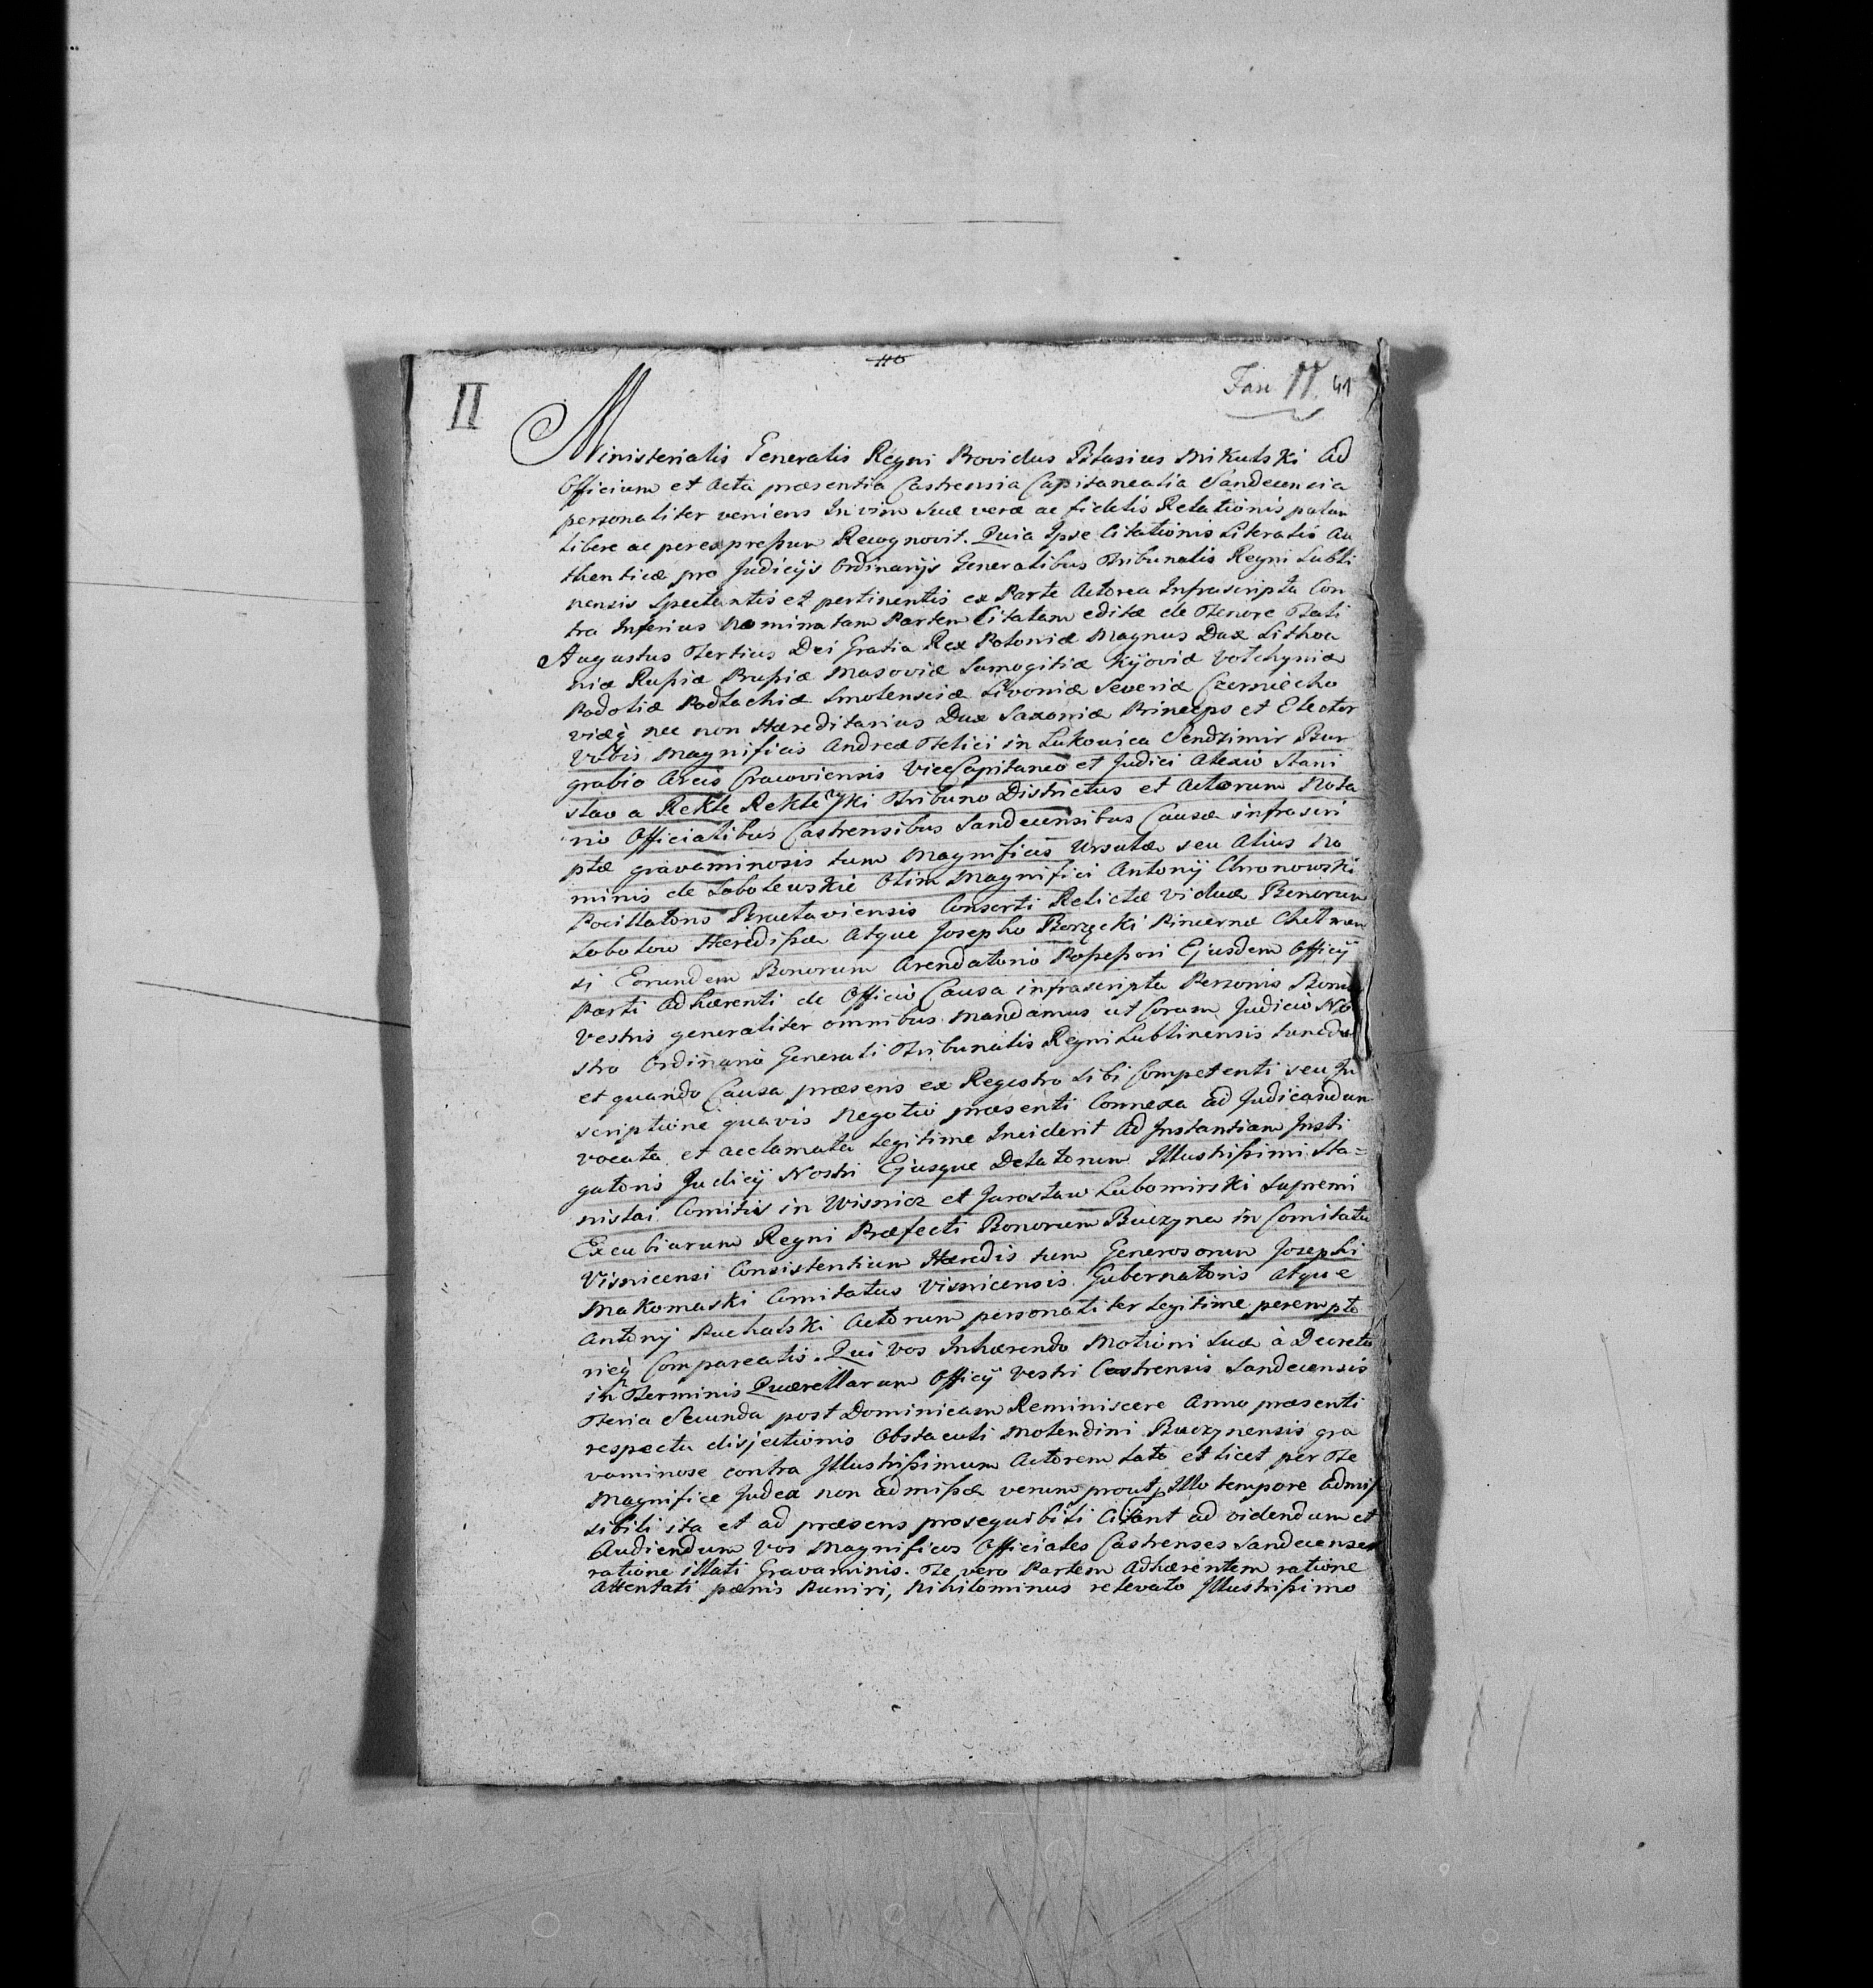 II
Fasc II. 41
Ministerialis Generalis Regni Providus Blasius Mikulski ad
Officium et Acta præsentia Castrensia Capitanealia Sandecensia
personaliter veniens In vim Suæ veræ ac fidelis Relationis palam
Libere ac per expreßum Recognovit. Quia Ipse Citationis Literalis Au
thenticæ pro Judicijs Ordinarijs Generalibus Tribunalis Regni Lubli
nensis Spectantis et pertinentis ex Parte Actorea Infrascripta Con
tra Inferius Nominatam Partem Citatam editæ de Tenore Tali
Augustus Tertius Dei Gratia Rex Poloniæ Magnus Dux Lithva
niæ Rußiæ Prußiæ Masoviæ Samogitiæ Kijoviæ Volhyniæ
Podoliæ Podlachiæ Smolensciæ Livoniæ Severiæ Czerniecho
viæq̃ nec non Hæreditarius Dux Saxoniæ Princeps et Elector
Vobis Magnificis Andreæ Felici in Lukowica Sendzimir Bur
grabio Arcis Cracoviensis ViceCapitaneo et Judici Alexio Stani
slao a Rekle Reklewski Tribuno Districtus et Actorum Nota
rio Officialibus Castrensibus Sandecensibus Causæ infrascri
ptæ gravaminosis tum Magnificis Ursulæ seu Alius No
minis de Łobolewskie Olim Magnifici Antonij Chronowski
Pocillatoris Braclaviensis Consorti Relictæ Viduæ Bonorum
Łobolow Hæredißæ Atque Josepho Borzęcki Pincernæ Chelmen
si Eorundem Bonorum Arendatorio Poßeßori Ejusdem Officij
Parti Adhærenti de Officio Causa infrascripta Personis Bonis
Vestris generaliter omnibus mandamus ut Coram Judicio No
stro Ordinario Generali Tribunalis Regni Lublinensis tunc dum
et quando Causa præsens ex Regestro Sibi Competenti seu In
scriptione quavis Negotio præsenti Connexa ad Judicandum
vocata et acclamata Legitime Inciderit Ad Instantiam Insti
gatoris Judicij Nostri Ejusque Delatorum Illustrißimi Sta=
nislai Comitis in Wisnicz et Jaroslaw Lubomirski Supremi
Excubiarum Regni Præfecti Bonorum Buczyna in Comitatu
Visnicensi Consistentium Hæredis tum Generosorum Josephi
Makomaski Comitatus Visnicensis Gubernatoris Atque
Antonij Puchalski Actorum personaliter Legitime perempto
rieq̃ Compareatis. Qui Vos Inhærendo Motioni Suæ à Decreto
in Terminis Querellarum Officij Vestri Castrensis Sandecensis
Feria Secunda post Dominicam Reminiscere Anno præsenti
respectu disjectionis Obstaculi Molendini Buczynensis gra
vaminose contra Illustrißimum Actorem Lato et licet per Te
Magnifice Judex non admißæ verum prout Illo tempore admis
sibili ita et ad præsens prosequibili Citant ad videndum et
Audiendum Vos Magnificos Officiales Castrenses Sandecenses
ratione illati Gravaminis. Te vero Partem Adhærentem ratione
Attentati pœnis Puniri, Nihilominus relevato Illustrißimo